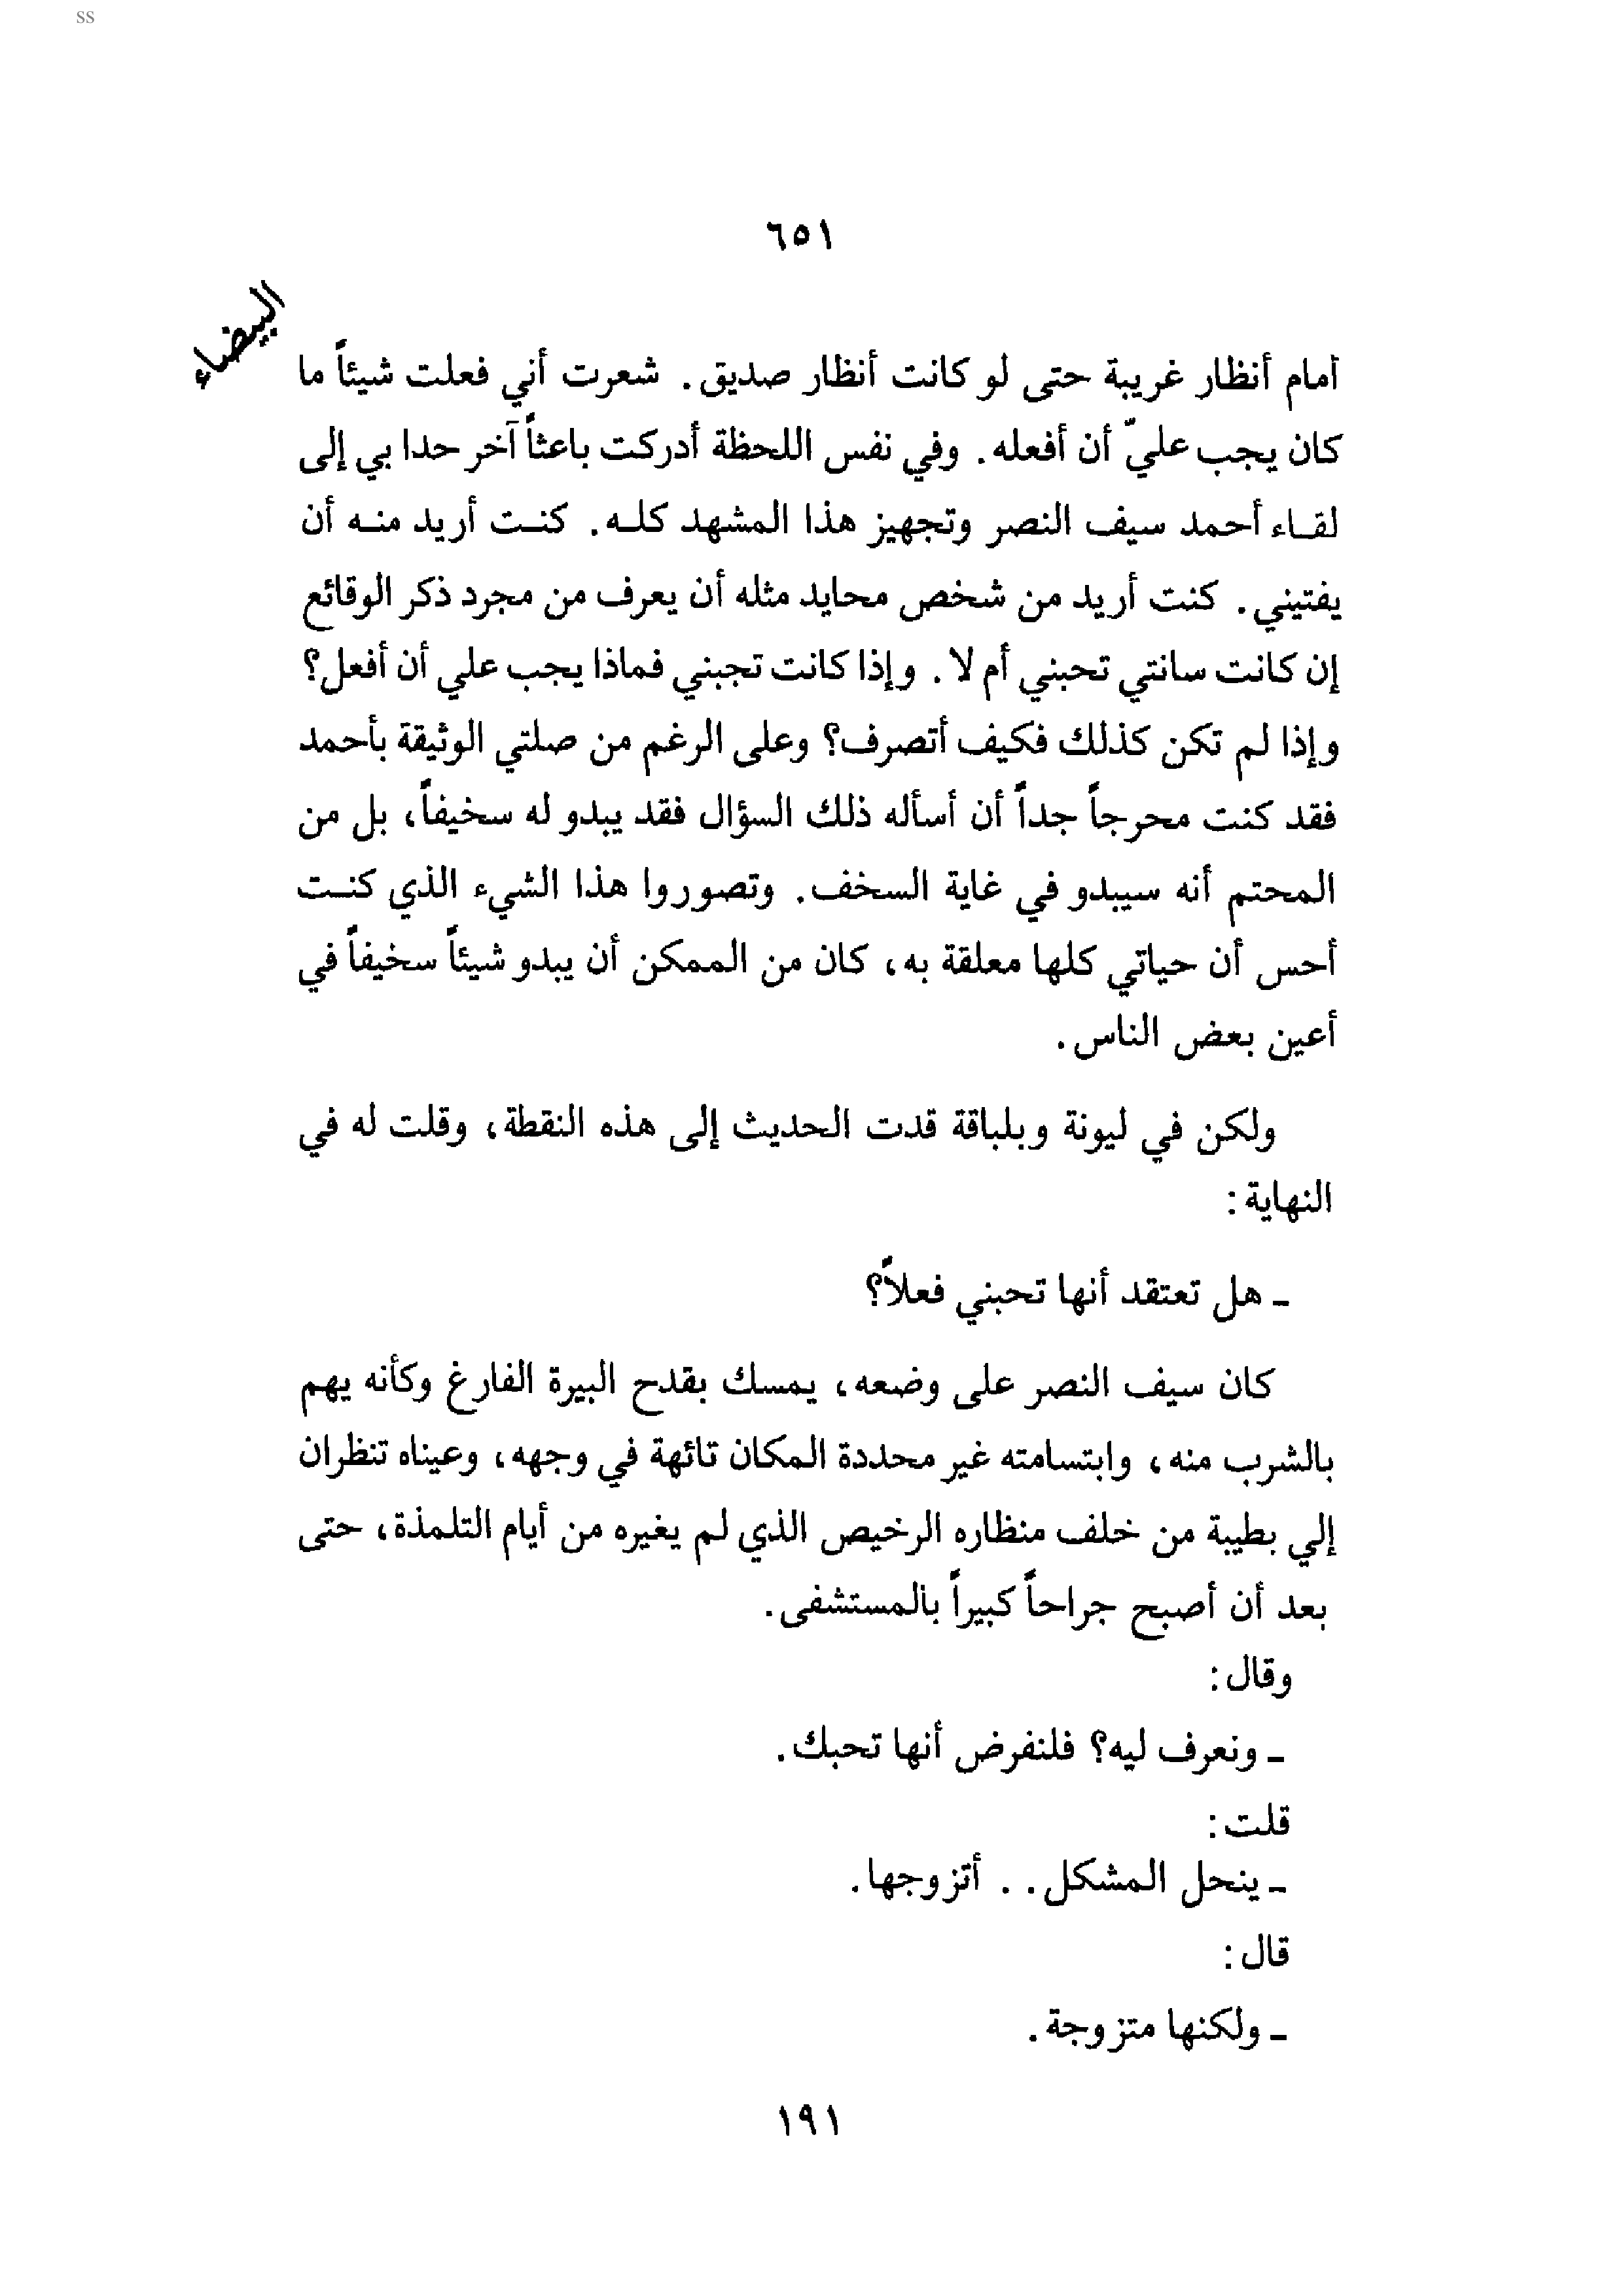 ss
٦٥١
البيضاء
أمام أنظار غريبة حتى لو كانت أنظار صديق. شعرت أني فعلت شيئاً ما
كان يجب عليّ أن أفعله. وفي نفس اللحظة أدركت باعثاً آخر حدا بي إلى
لقـاء أحمد سيف النصر وتجهيز هذا المشهد كلـه. كنـت أريد منـه أن
يفتيني. كنت أريد من شخص محايد مثله أن يعرف من مجرد ذكر الوقائع
إن كانت سانتي تحبني أم لا. وإذا كانت تجبني فماذا يجب علي أن أفعل؟
وإذا لم تكن كذلك فكيف أتصرف؟ وعلى الرغم من صلتي الوثيقة بأحمد
فقد كنت محرجاً جداً أن أسأله ذلك السؤال فقد يبدو له سخيفاً، بل من
المحتم أنه سيبدو في غاية السخف. وتصوروا هذا الشيء الذي كنـت
أحس أن حياتي كلها معلقة به، كان من الممكن أن يبدو شيئاً سخيفاً في
أعين بعض الناس.
ولكن في ليونة وبلباقة قدت الحديث إلى هذه النقطة، وقلت له في
النهاية:
ـ هل تعتقد أنها تحبني فعلاً؟
كان سيف النصر على وضعه، يمسك بقدح البيرة الفارغ وكأنه يهم
بالشرب منه، وابتسامته غير محددة المكان تائهة في وجهه، وعيناه تنظران
إلي بطيبة من خلف منظاره الرخيص الذي لم يغيره من أيام التلمذة، حتى
بعد أن أصبح جراحاً كبيراً بالمستشفى.
وقال:
ـ ونعرف ليه؟ فلنفرض أنها تحبك.
قلت:
ـ ينحل المشكل.. أتزوجها.
قال:
ـ ولكنها متزوجة.
١٩١